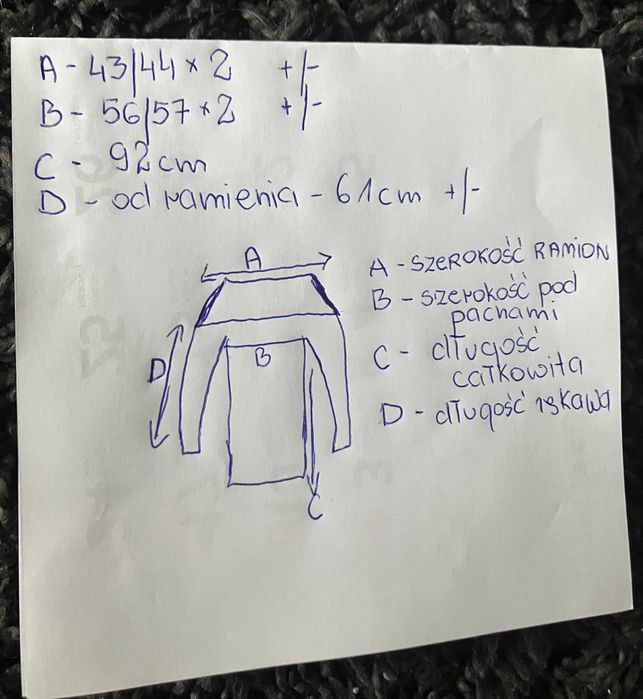 A - 43/44 x 2 +/-
B - 56/57 x 2 +/-
C - 92cm
D - od ramienia - 61cm +/-
A
B
D
C
A - SZEROKOŚĆ RAMION
B - SZEROKOŚĆ pod
pachami
C - długość
całkowita
D - długość rękawa